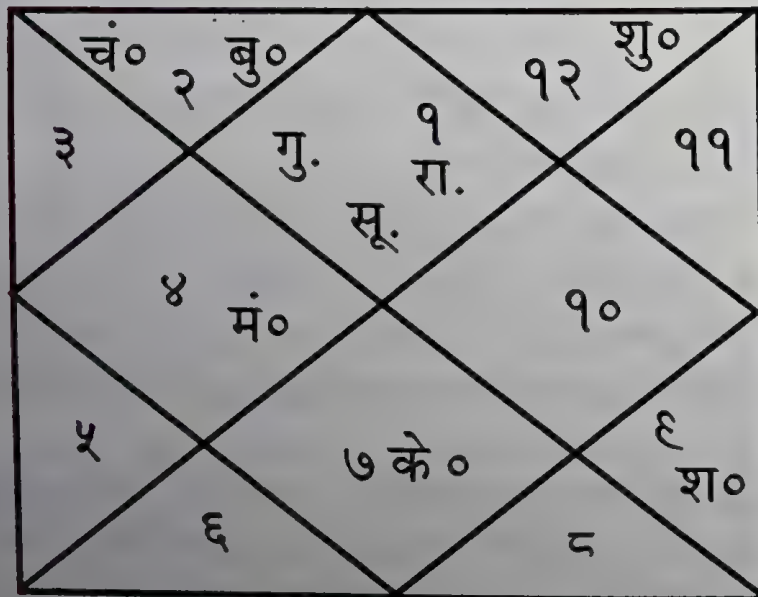 चं० २ बु०
१२ शु०
३
गु. १ रा. सू.
११
४ मं०
१०
५
७ के ०
९ श०
६
८